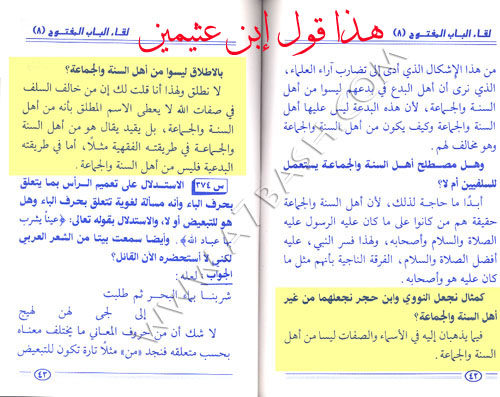 هذا قول إبن عثيمين
لقاء الباب المفتوح (٨)
من هذا الإشكال الذي أدى إلى تضارب آراء العلماء،
الذي نرى أن أهل البدع في بدعهم ليسوا من أهل
السنة والجماعة، لأن هذه البدعة ليس عليها أهل
السنة والجماعة وكيف يكون من أهل السنة والجماعة
وهو مخالف لهم.
وهل مصطلح أهل السنة والجماعة يستعمل
للسلفيين أم لا؟
أبدًا ما حاجة لذلك، لأن أهل السنة والجماعة
حقيقة هم من كانوا على ما كان عليه الرسول عليه
الصلاة والسلام وأصحابه، ولهذا فسر النبي، عليه
أفضل الصلاة والسلام، الفرقة الناجية بأنهم مثل ما
كان عليه هو وأصحابه.
كمثال نجعل النووي وابن حجر نجعلهما من غير
أهل السنة والجماعة؟
فيما يذهبان إليه في الأسماء والصفات ليسا من أهل
السنة والجماعة.
٤٢
لقاء الباب المفتوح (٨)
بالاطلاق ليسوا من أهل السنة والجماعة؟
لا نطلق ولهذا أنا قلت لك إن من خالف السلف
في صفات الله لا يعطى الاسم المطلق بأنه من أهل
السنة والجماعة، بل يقيد يقال هو من أهل السنة
والجماعة في طريقته الفقهية مثلًا، أما في طريقته
البدعية فليس من أهل السنة والجماعة.
س ٣٧٤ الاستدلال على تعميم الرأس بما يتعلق
بحرف الباء وأنه مسألة لغوية تتعلق بحرف الباء وهل
هو للتبعيض أو لا، والاستدلال بقوله تعالى: ﴿عيناً يشرب
بها عباد الله﴾. وأيضا سمعت بيتا من الشعر العربي
لكني لا أستحضره الآن القائل؟
الجواب: لعله:
شربنا بماء البحر ثم طلبت
إلى لجى لهن لهيج
لا شك أن من حروف المعاني ما يختلف معناه
بحسب متعلقه فنجد «من» مثلًا تارة تكون للتبعيض
٤٣
WWW.A7BACH.COM